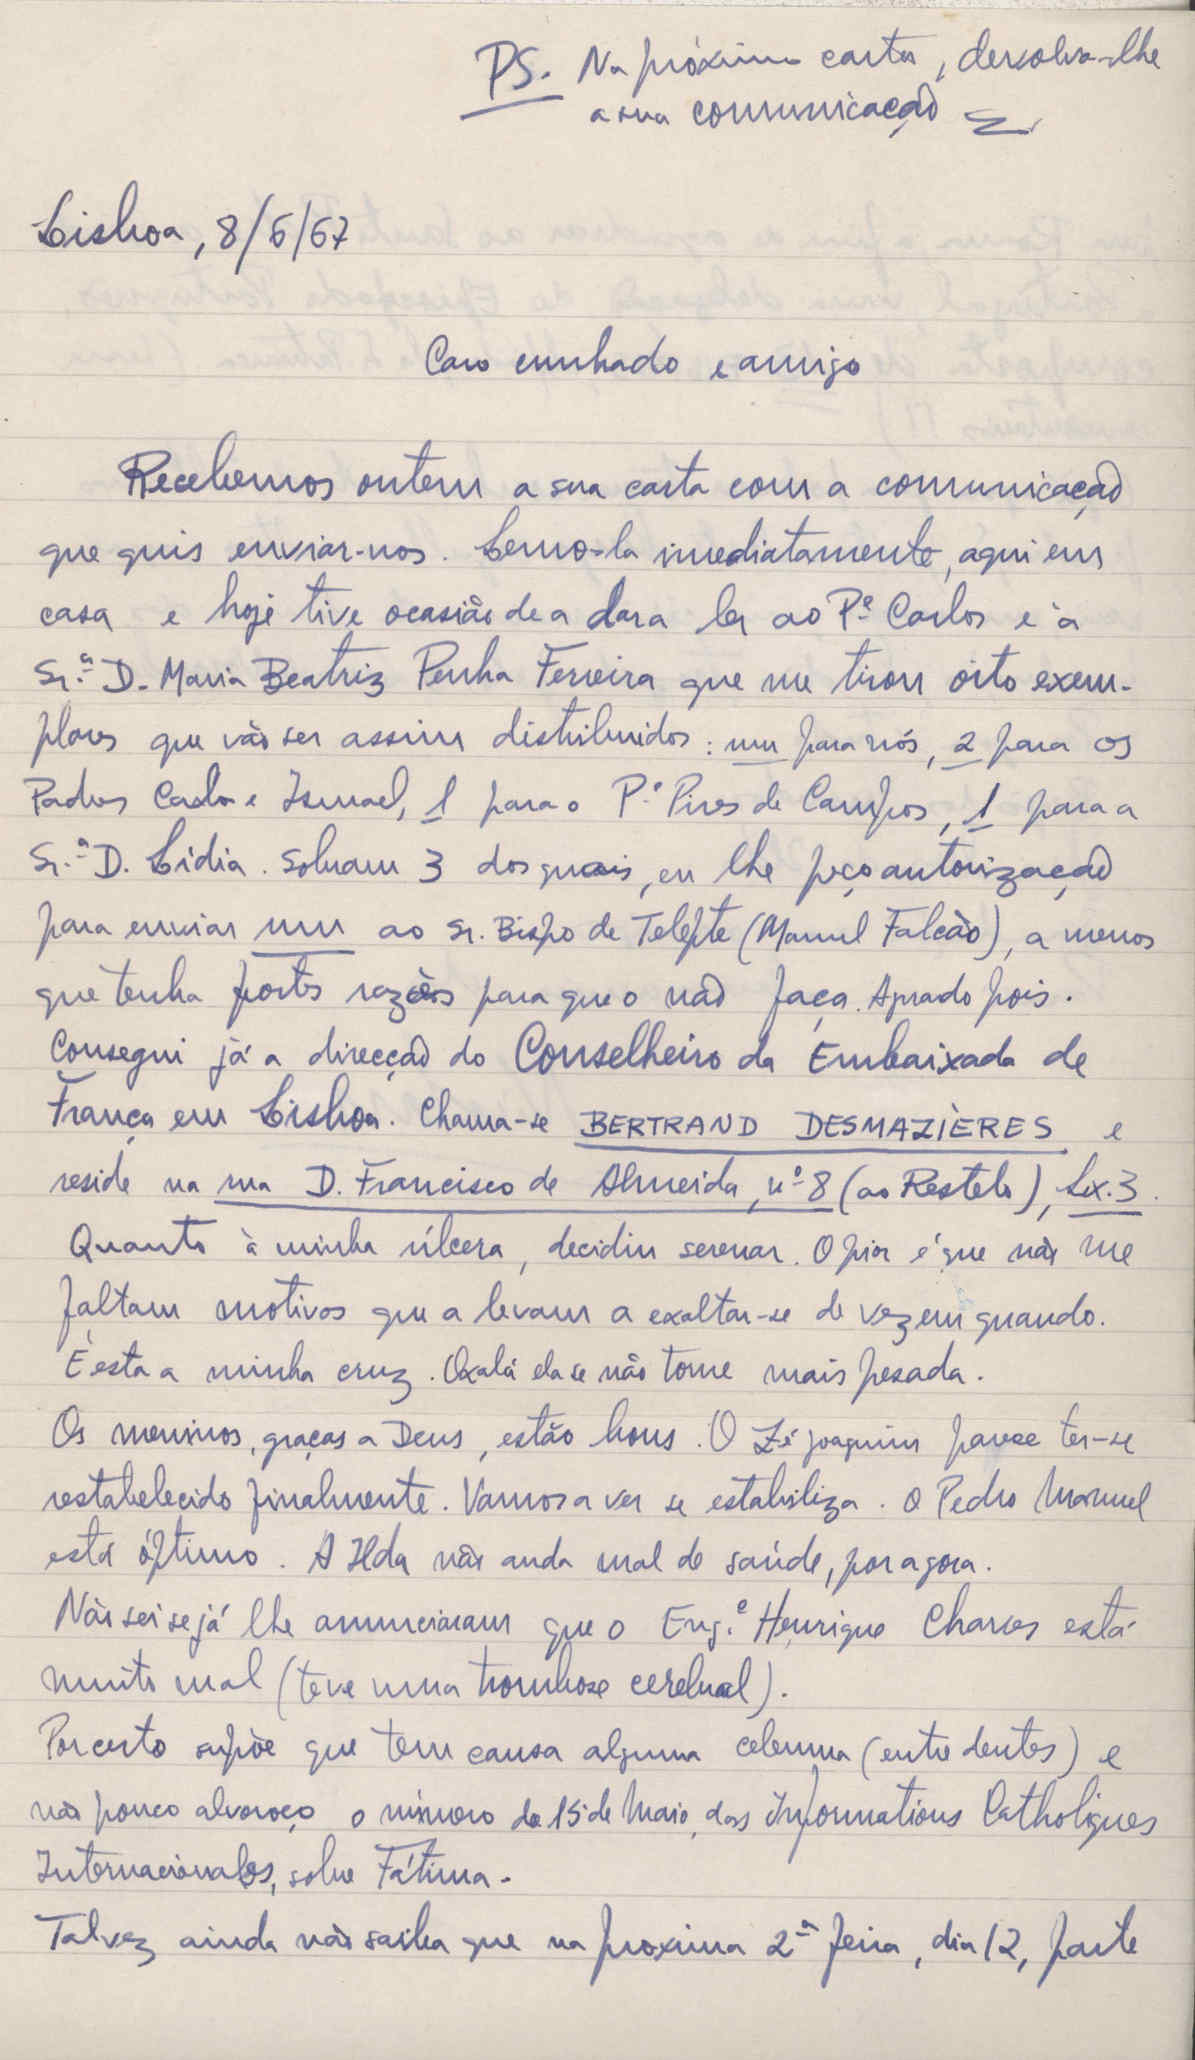 PS. Na próxima carta, devolvo-lhe
a sua comunicação
Lisboa, 8/6/67
Caro cunhado e amigo
Recebemos ontem a sua carta com a comunicação
que quis enviar-nos. Lemo-la imediatamente, aqui em
casa e hoje tive ocasião de a dar a ler ao Pe. Carlos e à
Sr.ª D. Maria Beatriz Penha Ferreira que me tirou oito exem-
plares que vão ser assim distribuidos: um para nós, 2 para os
Padres Carlos e Ismael, 1 para o P.e Pires de Campos, 1 para a
Sr.ª D. Lídia. Sobram 3 dos quais, eu lhe peço autorização
para enviar um ao Sr. Bispo de Telepte (Manuel Falcão), a menos
que tenha fortes razões para que o não faça. Aguardo pois.
Consegui já a direcção do Conselheiro da Embaixada de
França em Lisboa. Chama-se BERTRAND DESMAZIÈRES e
reside na rua D. Francisco de Almeida, nº 8 (ao Restelo), Lx. 3.
Quanto à minha úlcera, decidiu serenar. O pior é que não me
faltam motivos que a levam a exaltar-se de vez em quando.
É esta a minha cruz. Oxalá ela se não torne mais pesada.
Os meninos, graças a Deus, estão bons. O Zé Joaquim parece ter-se
restabelecido finalmente. Vamos a ver se estabiliza. O Pedro Manuel
está óptimo. A Ilda não anda mal de saúde, por agora.
Não sei se já lhe anunciaram que o Eng.º Henrique Chaves está
muito mal (teve uma trombose cerebral).
Por certo supõe que tem causa alguma celeuma (entre dentes) e
não pouco alvoroço o número de 15 de Maio, das Informations Catholiques
Internacionales, sobre Fátima.
Talvez ainda não saiba que na proxima 2ª feira, dia 12, parte